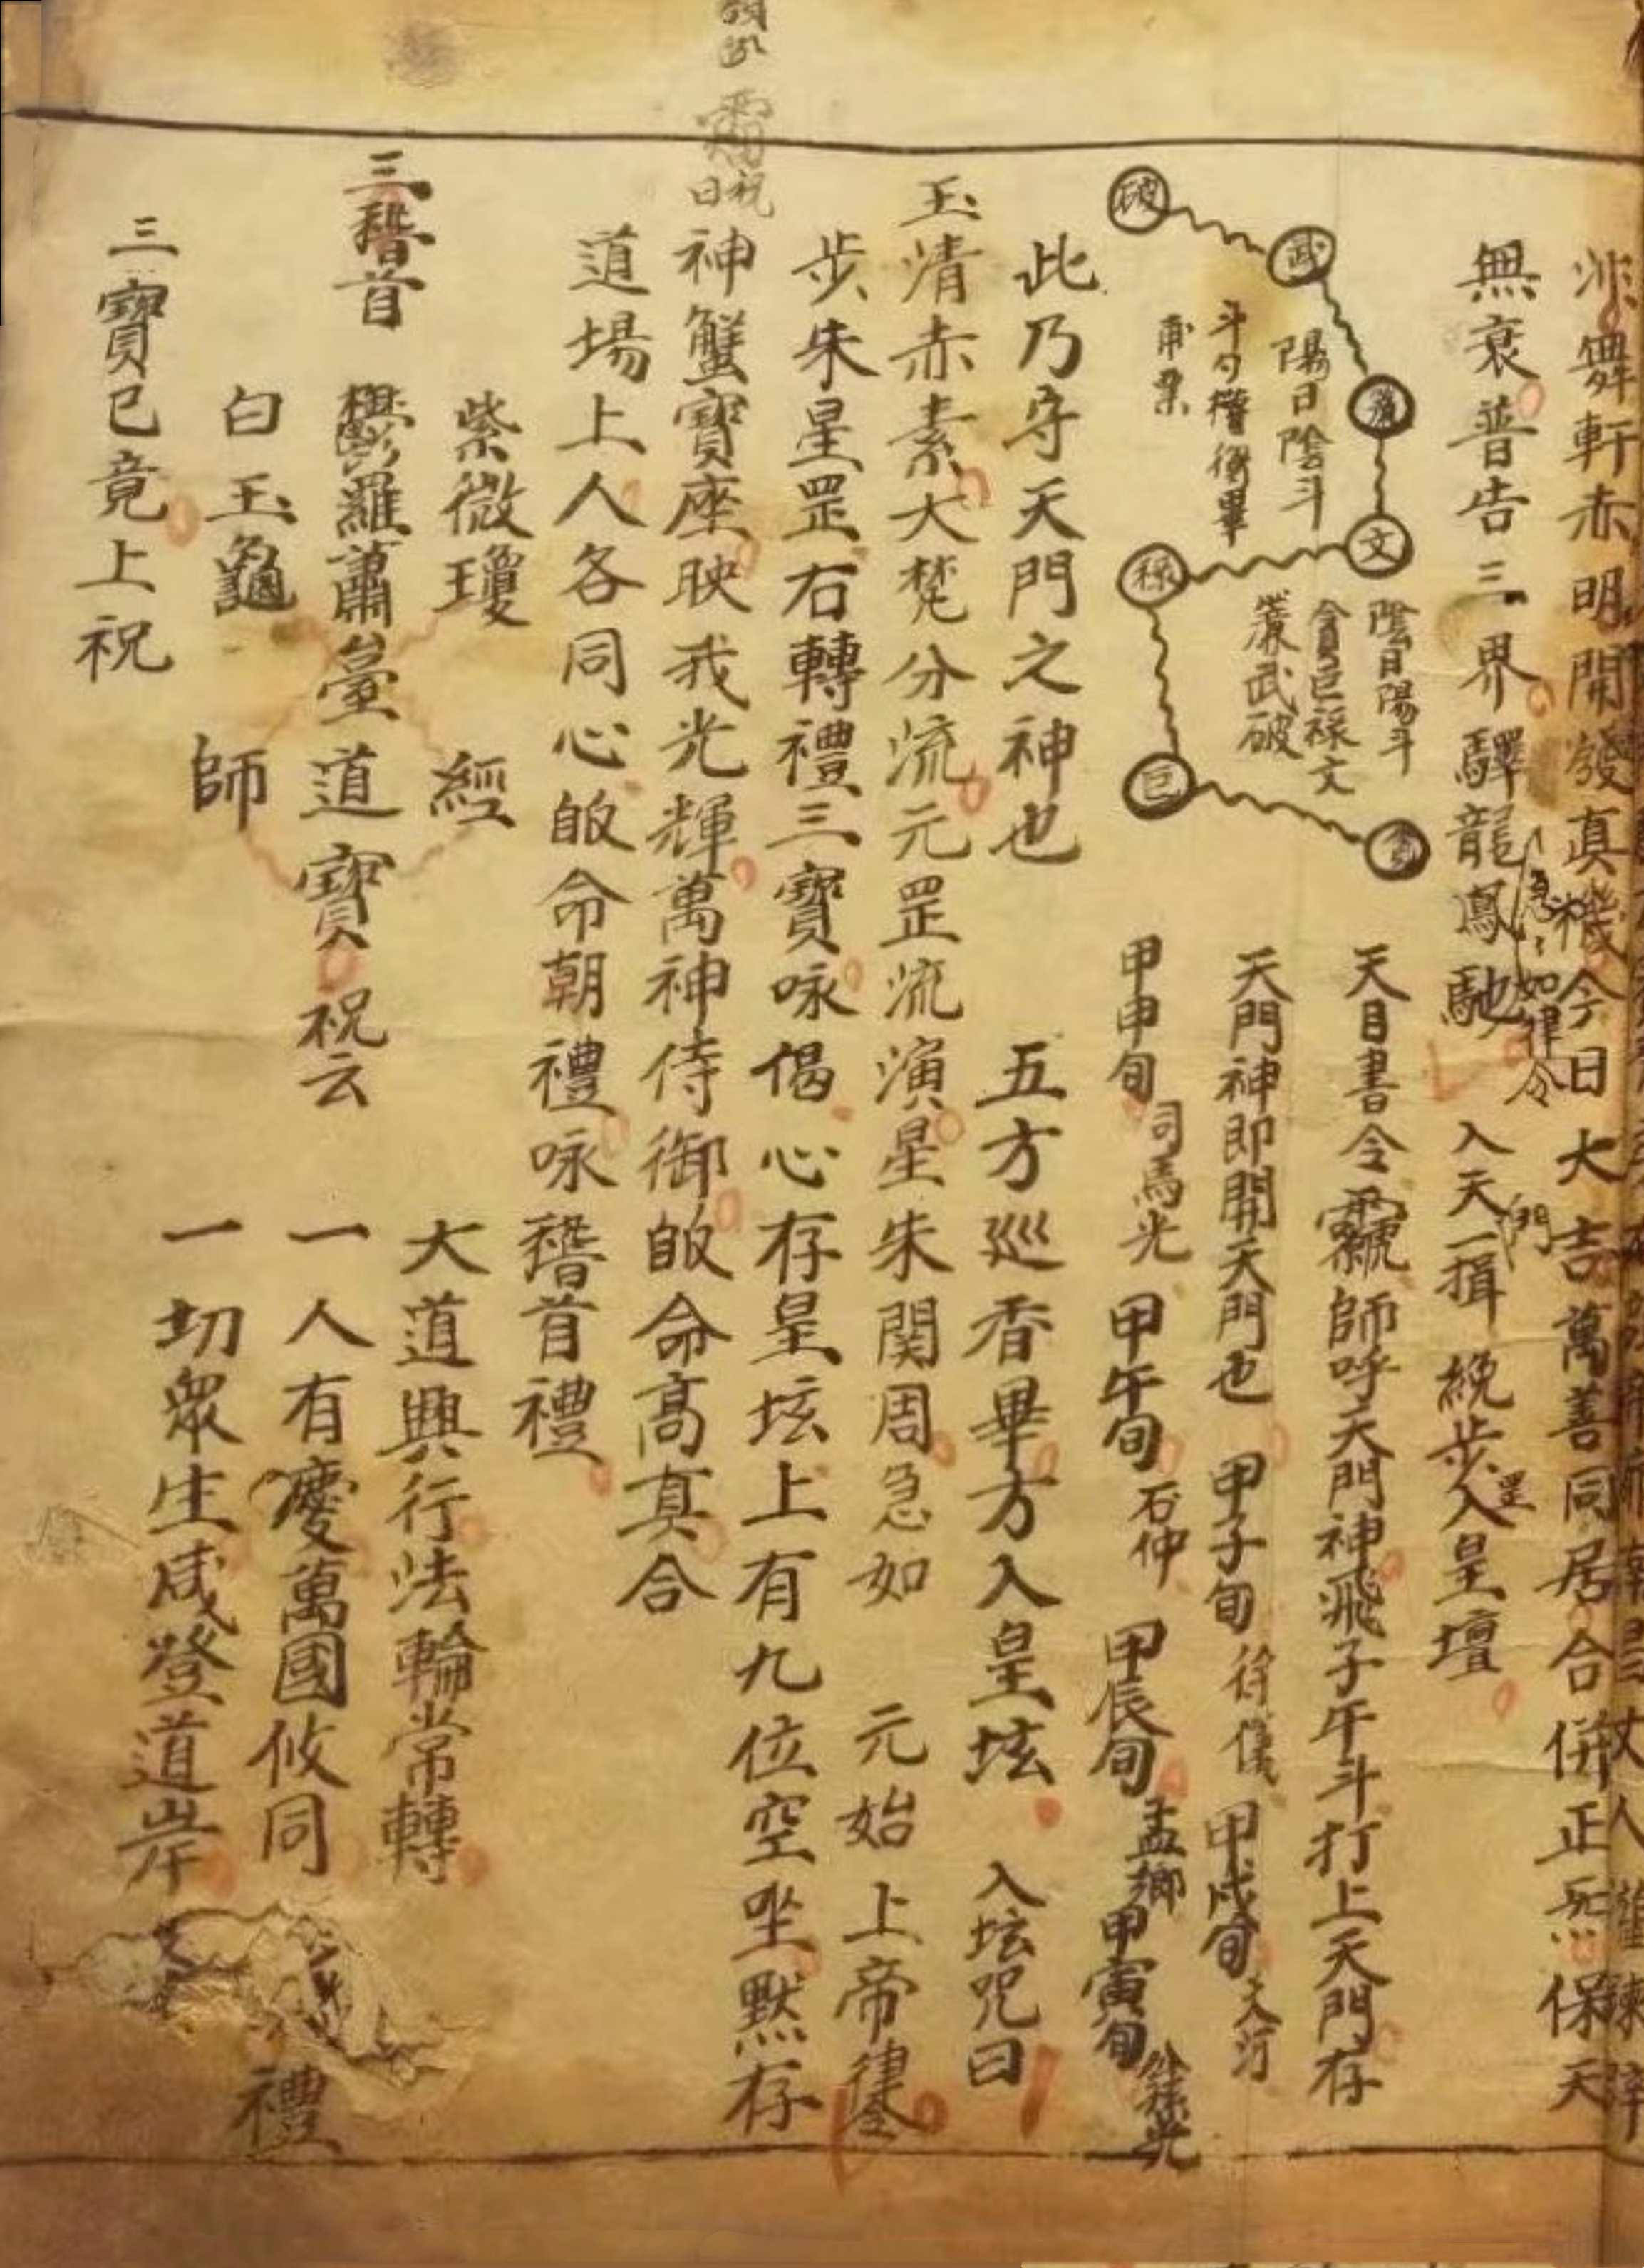 舞軒赤明開發真機今日大吉萬善同居合併正炁保天
急如律令
無衰普告三界驛龍鳳馳
入天門一揖
統步罡入皇壇
破
武
廉
文
祿
巨
貪
陽日陰斗
陰日陽斗
貪巨祿文
廉武破
天目書令
師呼天門神飛子午斗打上天門存
天門神即開天門也
甲子旬
徐儀
甲戌旬
甲申旬
司馬光
甲午旬
石仲
甲辰旬
孟卿
甲寅旬
此乃守天門之神也
五方巡香畢方入皇坛
入坛咒曰
玉清赤素大梵分流元罡流演星朱関周急如
元始上帝律令
步朱星罡右轉禮三寶咏偈心存皇坛上有九位空坐默存
祝曰
神蟹寶座映我光輝萬神侍御皈命高真合
道場上人各同心皈命朝禮咏稽首禮
三稽首
紫微瓊
鬱羅蕭臺
白玉龜
經
道寶
師
祝云
大道興行法輪常轉
一人有慶萬國攸同
一切眾生咸登道岸
禮
三寶已竟上祝